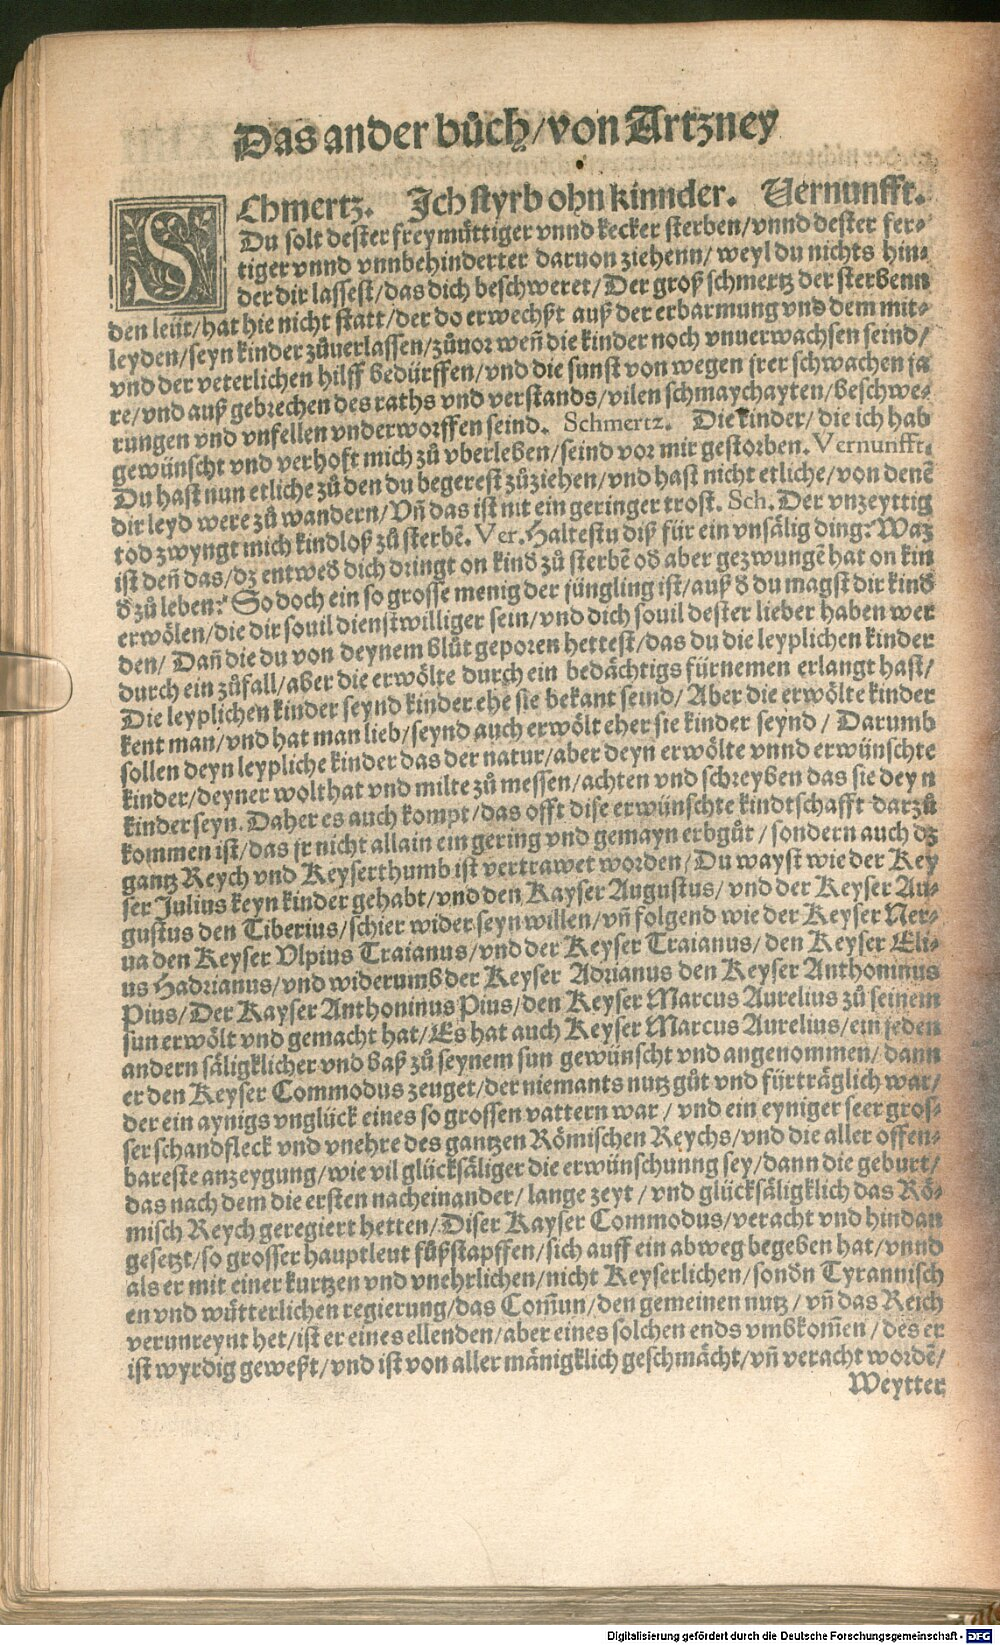 Das ander bůch/von Artzney
SChmertz. Ich styrb ohn kinnder. Vernunfft.
Du solt dester freymüttiger vnnd kecker sterben/vnnd dester fer⸗
tiger vnnd vnnbehinderter daruon ziehenn/weyl du nichts hin⸗
der dir lassest/das dich beschweret/Der groß schmertz der sterbenn
den leüt/hat hie nicht statt/der do erwechßt auß der erbarmung vnd dem mit⸗
leyden/seyn kinder zůuerlassen/zůuor weñ die kinder noch vnuerwachsen seind/
vnd der veterlichen hilff bedürffen/vnd die sunst von wegen jrer schwachen ja
re/vnd auß gebrechen des raths vnd verstands/vilen schmaychayten/beschwe⸗
rungen vnd vnfellen vnderworffen seind. Schmertz. Die kinder/die ich hab
gewünscht vnd verhoft mich zů vberleben/seind vor mir gestorben. Vernunfft.
Du hast nun etliche zů den du begerest zůziehen/vnd hast nicht etliche/von denē
dir leyd were zů wandern/Vñ das ist nit ein geringer trost. Sch. Der vnzeyttig
tod zwyngt mich kindloß zů sterbē. Ver. Haltestu diß für ein vnsälig ding? Waz
ist deñ das/dz entwed dich dringt on kind zů sterbē od aber gezwungē hat on kin
d zů leben? So doch ein so grosse menig der jüngling ist/auß d du magst dir kind
erwölen/die dir souil dienstwilliger sein/vnd dich souil dester lieber haben wer
den/Dañ die du von deynem blůt geporen hettest/das du die leyplichen kinder
durch ein zůfall/aber die erwölte durch ein bedächtigs fürnemen erlangt hast/
Die leyplichen kinder seynd kinder ehe sie bekant seind/Aber die erwölte kinder
kent man/vnd hat man lieb/seynd auch erwölt eher sie kinder seynd/Darumb
sollen deyn leypliche kinder das der natur/aber deyn erwölte vnnd erwünschte
kinder/deyner wolthat vnd milte zů messen/achten vnd schreyben das sie deyn
kinder seyn. Daher es auch kompt/das offt dise erwünschte kindtschafft darzů
kommen ist/das jr nicht allain ein gering vnd gemayn erbgůt/sondern auch dz
gantz Reych vnd Keyserthumb ist vertrawet worden/Du wayst wie der Key
ser Julius keyn kinder gehabt/vnd den Kayser Augustus/vnd der Keyser Au⸗
gustus den Tiberius/schier wider seyn willen/vñ folgend wie der Keyser Ner⸗
ua den Keyser Vlpius Traianus/vnd der Keyser Traianus/den Keyser Eli⸗
us Hadrianus/vnd widerumb der Keyser Adrianus den Keyser Anthoninus
Pius/Der Kayser Anthoninus Pius/den Keyser Marcus Aurelius zů seinem
sun erwölt vnd gemacht hat/Es hat auch Keyser Marcus Aurelius/ein jeden
andern säligklicher vnd baß zů seynem sun gewünscht vnd angenommen/dann
er den Keyser Commodus zeuget/der niemants nutz gůt vnd fürträglich war/
der ein aynigs vnglück eines so grossen vattern war/vnd ein eyniger seer gros⸗
ser schandfleck vnd vnehre des gantzen Römischen Reychs/vnd die aller offen⸗
bareste anzeygung/wie vil glücksäliger die erwünschunng sey/dann die geburt/
das nach dem die ersten nacheinander/lange zeyt/vnd glücksäligklich das Rö⸗
misch Reych geregiert hetten/Diser Kayser Commodus/veracht vnd hindan
gesetzt/so grosser hauptleut fůßstapffen/sich auff ein abweg begeben hat/vnnd
als er mit einer kurtzen vnd vnehrlichen/nicht Keyserlichen/sondn Tyrannisch
en vnd wütterlichen regierung/das Com̃un/den gemeinen nutz/vñ das Reich
verunreynt het/ist er eines ellenden/aber eines solchen ends vmbkom̃en/des er
ist wyrdig geweßt/vnd ist von aller mänigklich geschmächt/vñ veracht wordē/
Weytter
Digitalisierung gefördert durch die Deutsche Forschungsgemeinschaft - DFG